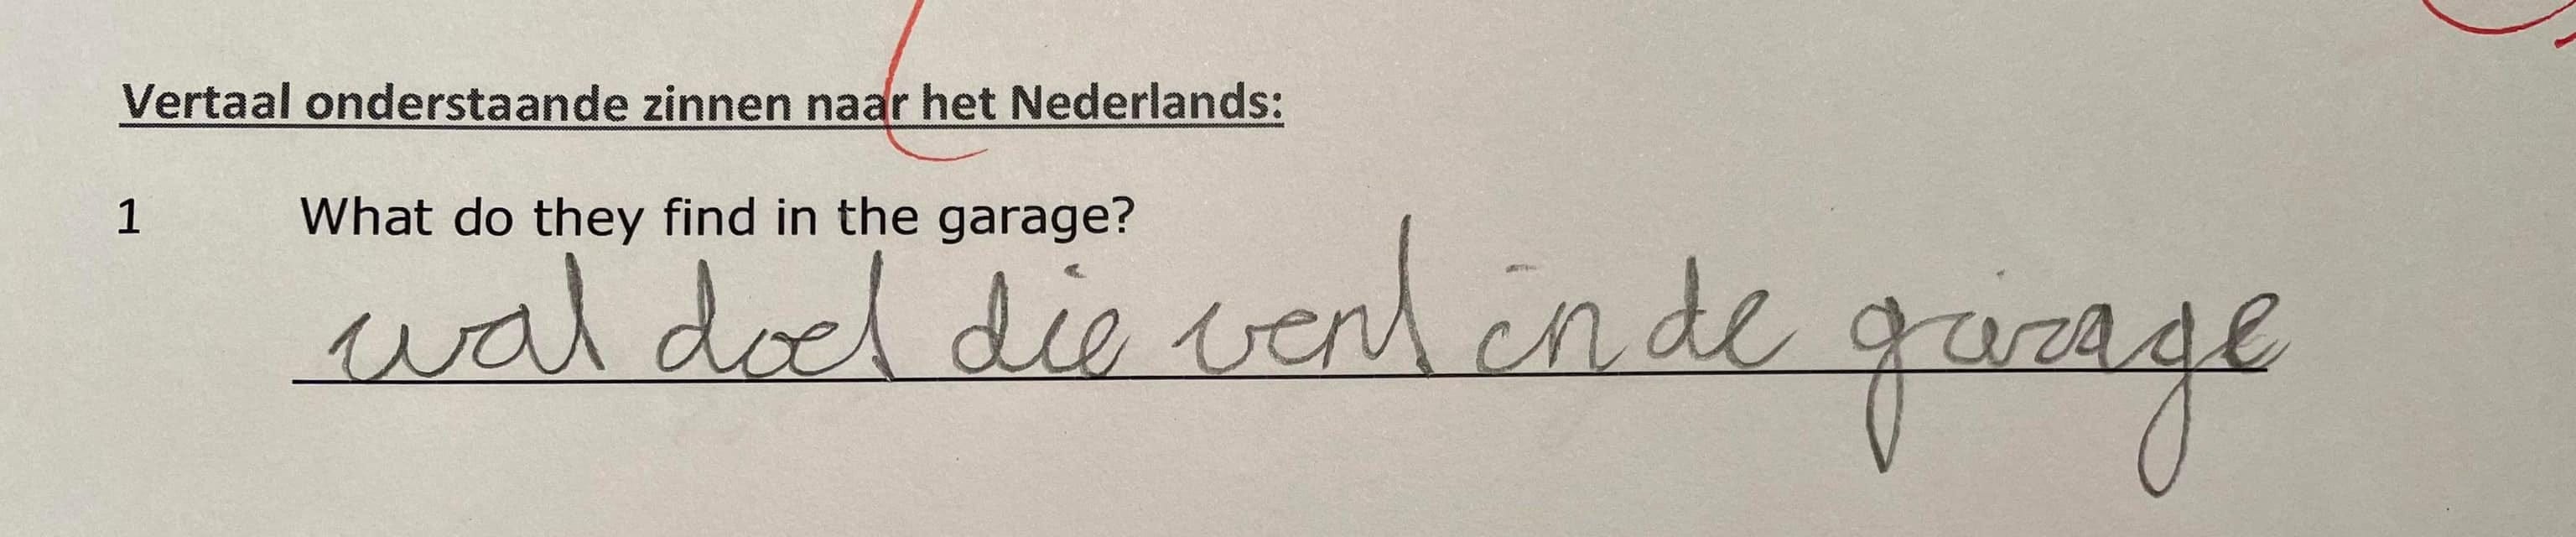 Vertaal onderstaande zinnen naar het Nederlands:
1 What do they find in the garage?
wat doet die vent in de garage